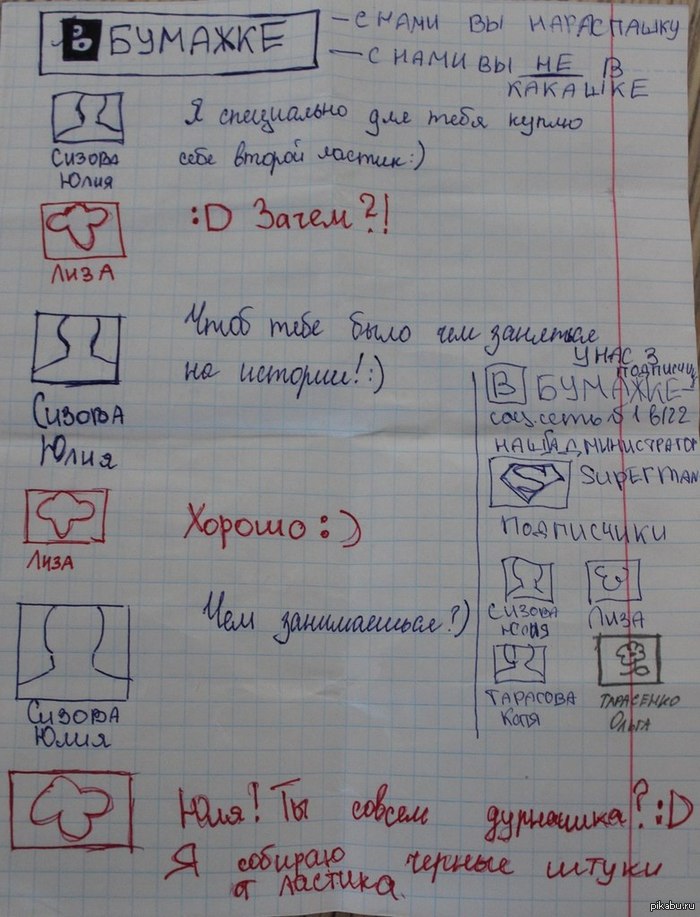 В БУМАЖКЕ
– С НАМИ ВЫ НАРАСПАШКУ
– С НАМИ ВЫ НЕ В
КАКАШКЕ
СИЗОВА
ЮЛИЯ
Я специально для тебя куплю
себе второй ластик:)
ЛИЗА
:D Зачем?!
СИЗОВА
ЮЛИЯ
Чтоб тебе было чем заняться
на истории!:)
ЛИЗА
Хорошо:)
СИЗОВА
ЮЛИЯ
Чем занимаешься?)
Юля! Ты совсем дурнашка?:D
Я собираю черные штуки
от ластика.
У НАС 3
ПОДПИСЧИ
В БУМАЖКЕ
соц.сеть
НАШ АДМИНИСТРАТОР
S SUPERMAN
ПОДПИСЧИКИ
СИЗОВА
ЮЛИЯ
ЛИЗА
ТАРАСОВА
КАТЯ
ТАРАСЕНКО
ОЛЬГА
pikabu.ru